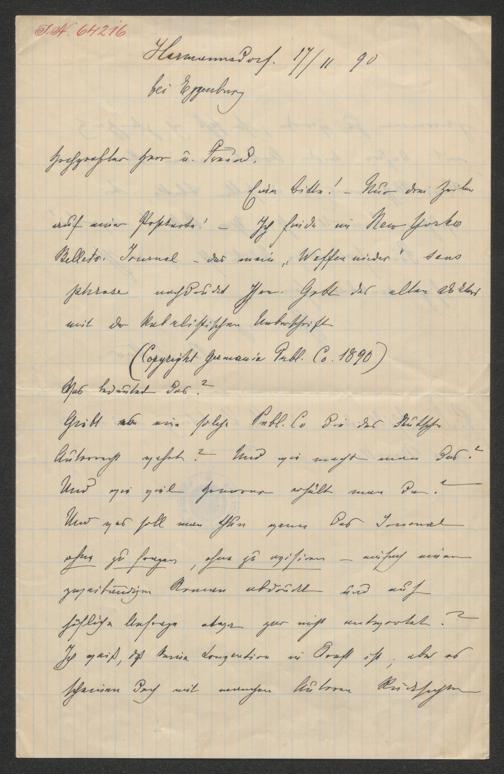 I.N. 64216
Hermannsdorf. 17/11 90
bei Eggenburg
Hochgeehrter Herr u. Freund.
Eine Bitte! – Nur drei Zeilen
auf einer Postkarte! – Ich finde im New Yorker
Belletr. Journal – das mein „Waffen nieder" sans
phrase nachdruckt
mit der kabalistischen Unterschrift
(Copyright Germania Publ. Co. 1890)
Was bedeutet das?
Gibt es eine solche Publ. Co die das Deutsche
Autorrecht wahrt? Und wie macht man das?
Und wie viel Honorar erhält man da?
Und was soll man thun wenn das Journal
ohne zu fragen, ohne zu avisiren – einfach einen
zweibändigen Roman abdruckt und auf
höfliche Anfrage gar nicht antwortet?
Ich weiß, daß keine Convention in Kraft ist; aber es
scheinen doch mit manchen Autoren Rücksichten